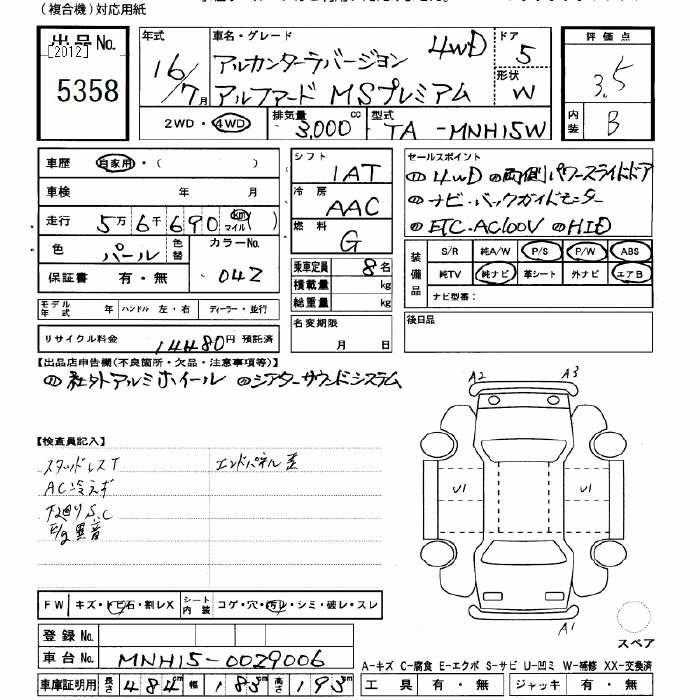 (複合機)対応用紙
出品No.
[2012]
5358
年式
16/7月
車名・グレード
アルカンターラバージョン 4WD
アルファード MSプレミアム
ドア
5
形状
W
評価点
3.5
内装
B
2WD・4WD
排気量
3,000cc
型式
TA-MNH15W
車歴 自家用・( )
車検 年 月
走行 5万6千690 km マイル ( )
色 パール 色替 カラーNo. 042
保証書 有・無
モデル年式 年 ハンドル 左・右 ディーラー・並行
リサイクル料金 14480円 預託済
シフト 1AT
冷房 AAC
燃料 G
乗車定員 8名
積載量 kg
総重量 kg
名変期限
月 日
セールスポイント
の4WD の両側パワースライドドア
のナビ・バックガイドモニター
のETC・AC100V のHID
装備品
S/R 純A/W P/S P/W ABS
純TV 純ナビ 革シート 外ナビ エアB
ナビ型番:
後日品
【出品店申告欄(不良箇所・欠品・注意事項等)】
の社外アルミホイール のシアターサウンドシステム
【検査員記入】
スタッドレスT
エンドパネル歪
AC冷えず
下廻りS.C
E/g異音
A2
A3
U1
U1
A1
スペア
FW キズ・トビ石・割レX シート内装 コゲ・穴・汚レ・シミ・破レ・スレ
登録No.
車台No. MNH15-0029006
車庫証明用 長さ 484cm 幅 183cm 高さ 193cm
A-キズ C-腐食 E-エクボ S-サビ U-凹ミ W-補修 XX-交換済
工具 有・無 ジャッキ 有・無